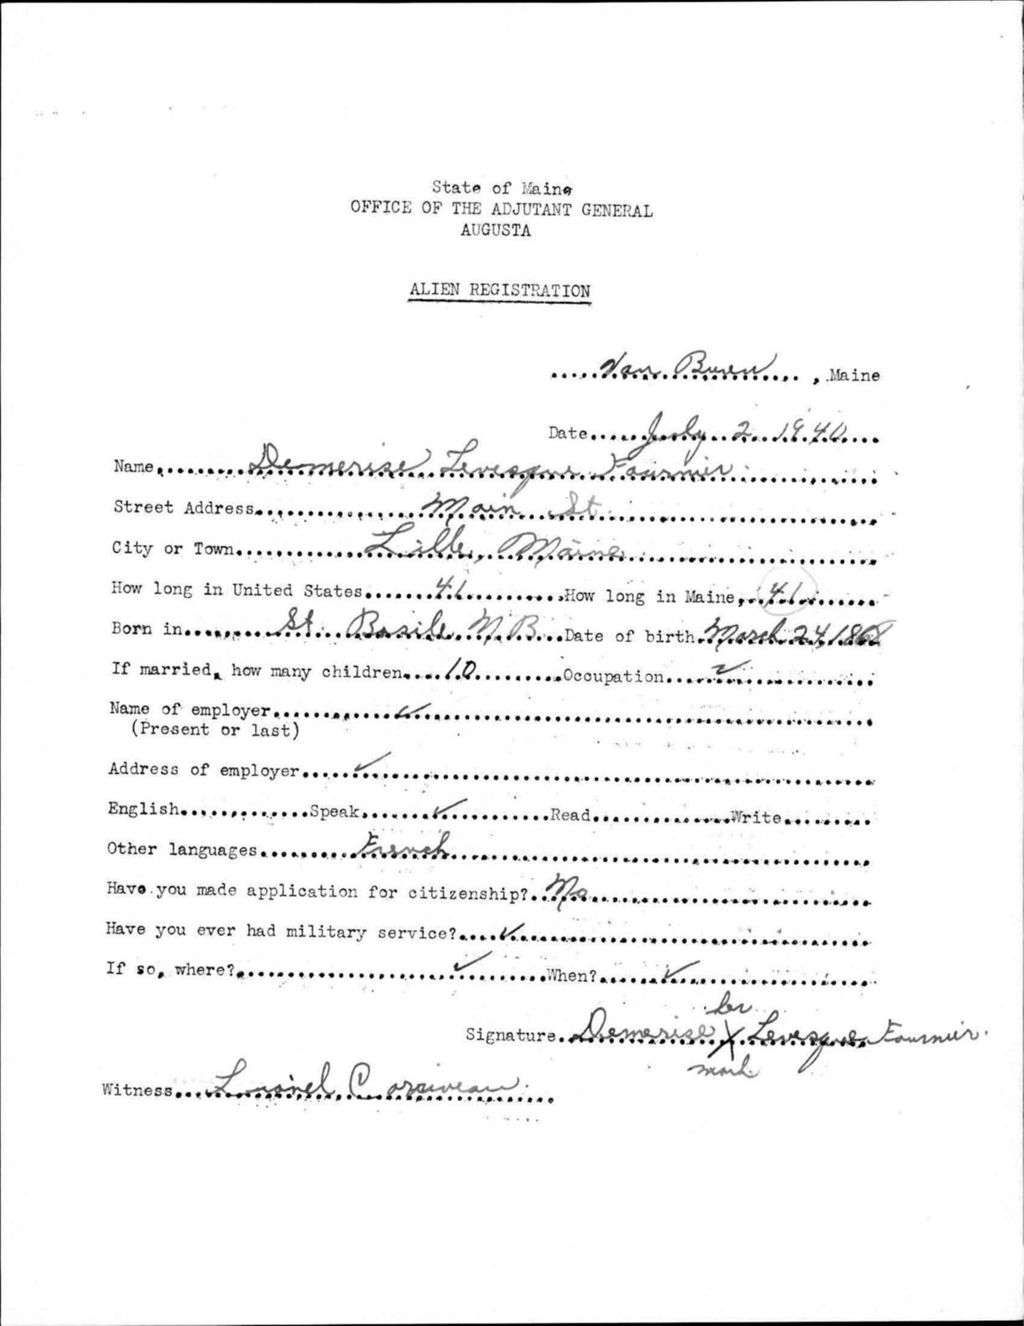 State of Maine
OFFICE OF THE ADJUTANT GENERAL
AUGUSTA
ALIEN REGISTRATION
Van Buren, Maine
Date July 2 1940
Name Demerise Levesque Fournier
Street Address Main St.
City or Town Lille, Maine
How long in United States 41 How long in Maine 41
Born in St. Basile N.B. Date of birth March 24, 1868
If married, how many children 10 Occupation ✓
Name of employer ✓
(Present or last)
Address of employer ✓
English Speak ✓ Read Write
Other languages French
Have you made application for citizenship? No
Have you ever had military service? ✓
If so, where? ✓ When? ✓
her
Signature Demerise X Levesque Fournier
mark
Witness Corriveau